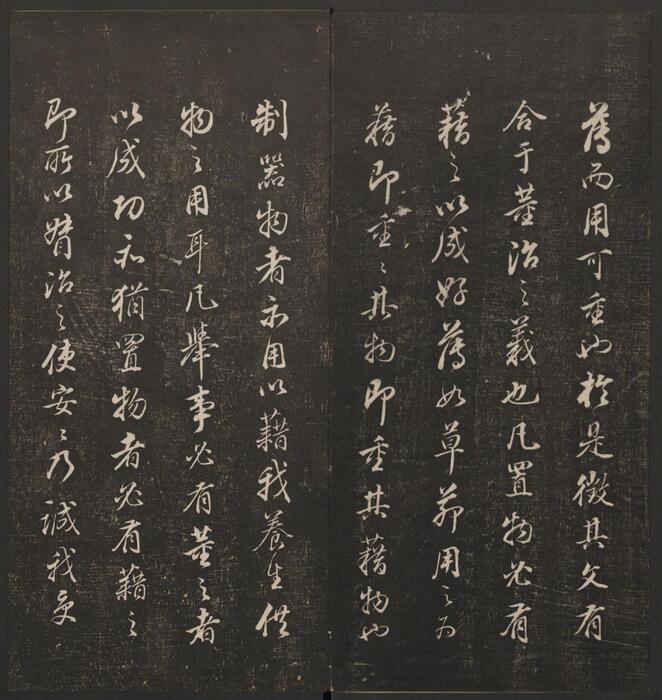 薄而用可重也於是徵其文有
合于董治之義也凡置物必有
藉之以成好薄如草茅用之為
藉即重之其物即重其藉物也
制器物者亦用以藉我養生供
物之用耳凡舉事必有董之者
以成功亦猶置物者必有藉之
即所以督治之使安之乃誠我受